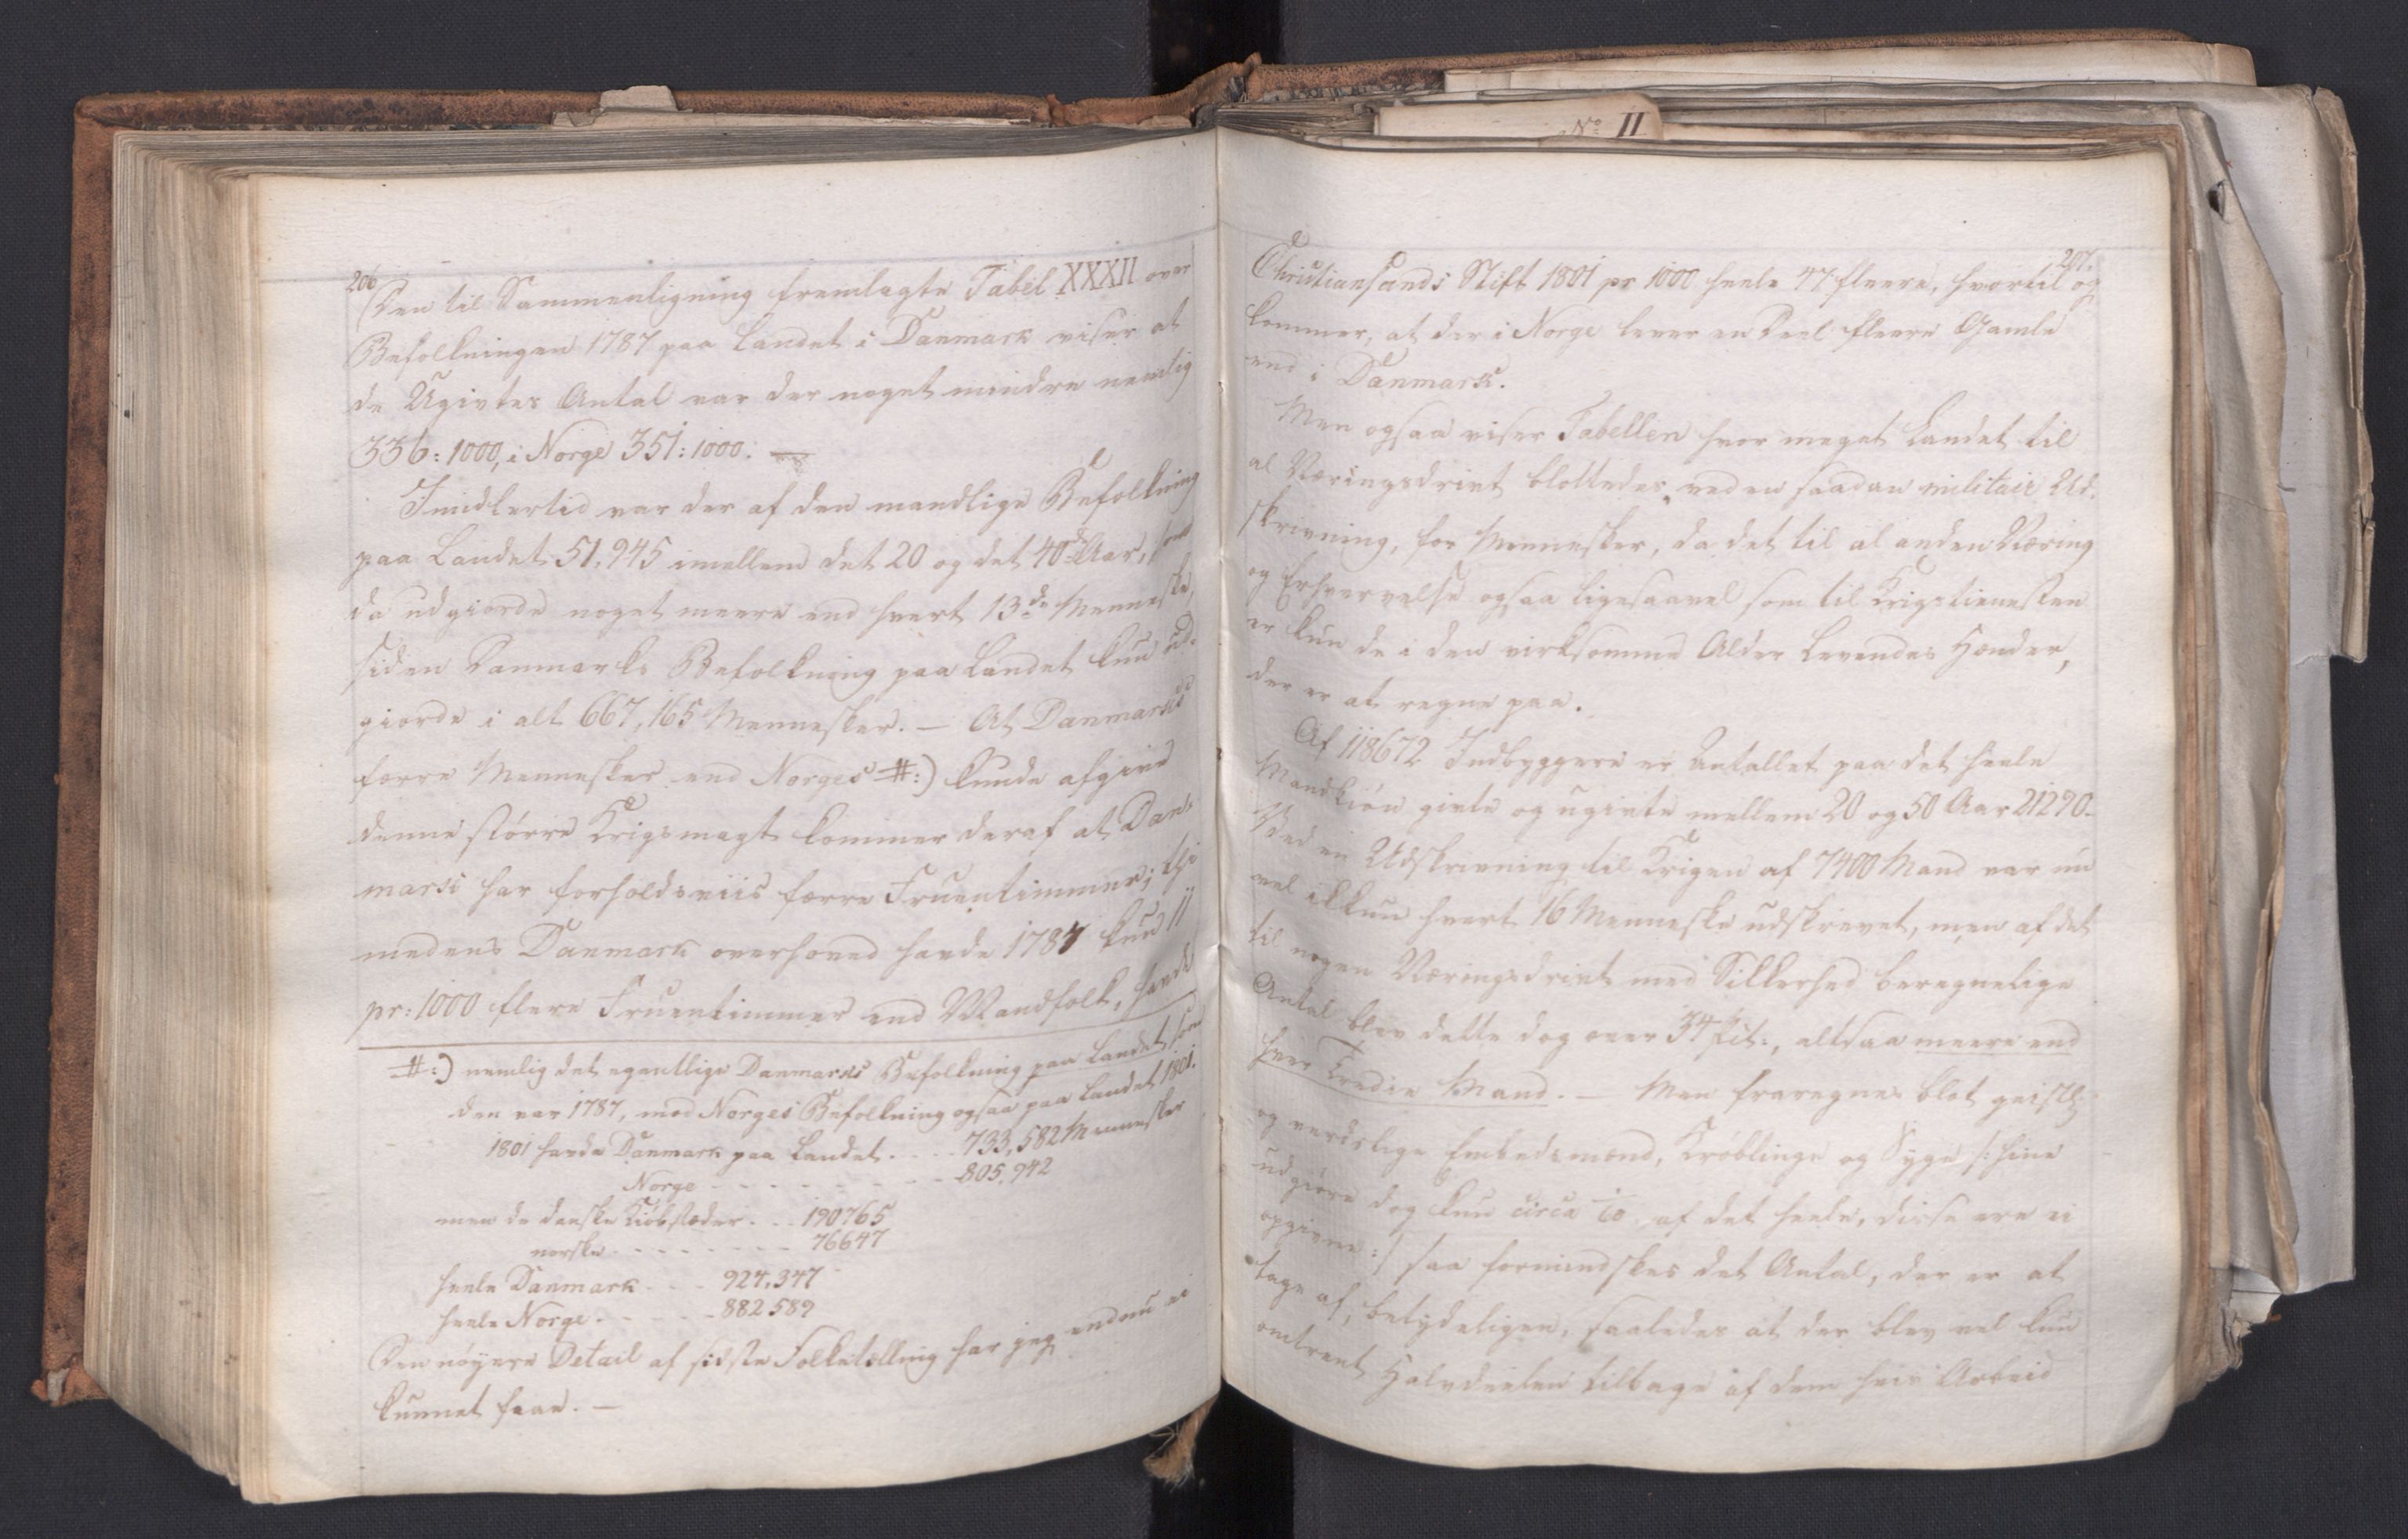 No II
206
Den til Sammenligning fremlagte Tabel XXXII over
Befolkningen 1787 paa Landet i Danmark viser at
de Ugivtes Antal var der noget mindre nemlig
336: 1000, i Norge 351: 1000. —
Imidlertid var der af den mandlige Befolkning
paa Landet 51,945 imellem det 20 og det 40de Aar, som
da udgiorde noget meere end hvert 13de Menneske,
siden Danmarks Befolkning paa Landet kun ud-
giorde i alt 667,165 Mennesker. — At Danmarks
færre Mennesker end Norges #:) kunde afgive
denne større Krigsmagt kommer deraf at Dan-
mark har forholdsviis færre Fruentimmer; thi
medens Danmark overhoved havde 1787 kun 11
pr: 1000 flere Fruentimmer end Mandfolk, havde
#:) nemlig det egentlige Danmarks Befolkning paa Landet som
den var 1787, mod Norges Befolkning ogsaa paa Landet 1801.
1801 havde Danmark paa Landet .... 733,582 Mennesker
Norge - - - - - - - - 805,942
men de danske Kiøbstæder ... 190765
norske - - - - - - - 76647
heele Danmark - - - 924,347
heele Norge - - - - - 882589
Den nøyere Detail af sidste Folketælling har jeg endnu ei
kunnet faae. —
207.
Christiansands Stift 1801 pr 1000 heele 47 fleere, hvortil og
kommer, at der i Norge lever en Deel fleere Gamle
end i Danmark.
Men ogsaa viser Tabellen hvor meget Landet til
al Næringsdrivt blottedes ved en saadan militair Ud-
skrivning, for Mennesker, da det til al anden Næring
og Erhvervelse ogsaa ligesaavel som til Krigstienesten
er kun de i den virksomme Alder Levendes Hænder,
der er at regne paa.
Af 118672 Indbyggere er Antallet paa det heele
Mandkiøn givte og ugivte mellem 20 og 50 Aar 21290.
Ved en Udskrivning til Krigen af 7400 Mand var nu
vel ikkun hvert 16 Menneske udskrevet, men af det
til nogen Næringsdrivt med Sikkerhed beregnelige
Antal blev dette dog over 34 pCt:, altsaa meere end
hver tredie Mand. — Men fraregnes blot geistl:
og verdslige Embedsmænd, Krøblinge og Syge /: hine
udgiøre dog kun circa 1/60 af det heele, disse ere ei
opgivne :/ saa formindskes det Antal, der er at
tage af, betydeligen, saaledes at der blev vel kun
omtrent Halvdeelen tilbage af dem hvis Arbeid